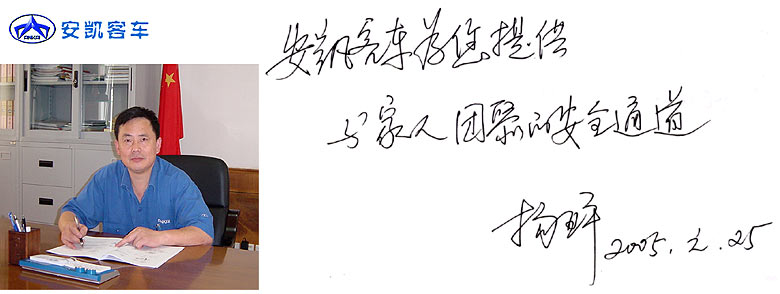 安凯客车
安凯客车为您提供
与家人团聚的安全通道
2005.2.25